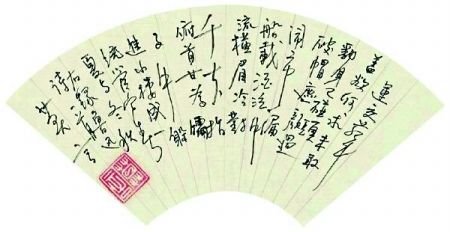 運交華
蓋欲何求未敢
翻身已碰頭
破帽遮顏過
鬧市漏
船載酒泛中
流橫眉冷對
千夫指
俯首甘為孺
子牛
進小樓成一
統管冬
夏春秋
錄魯迅
詩